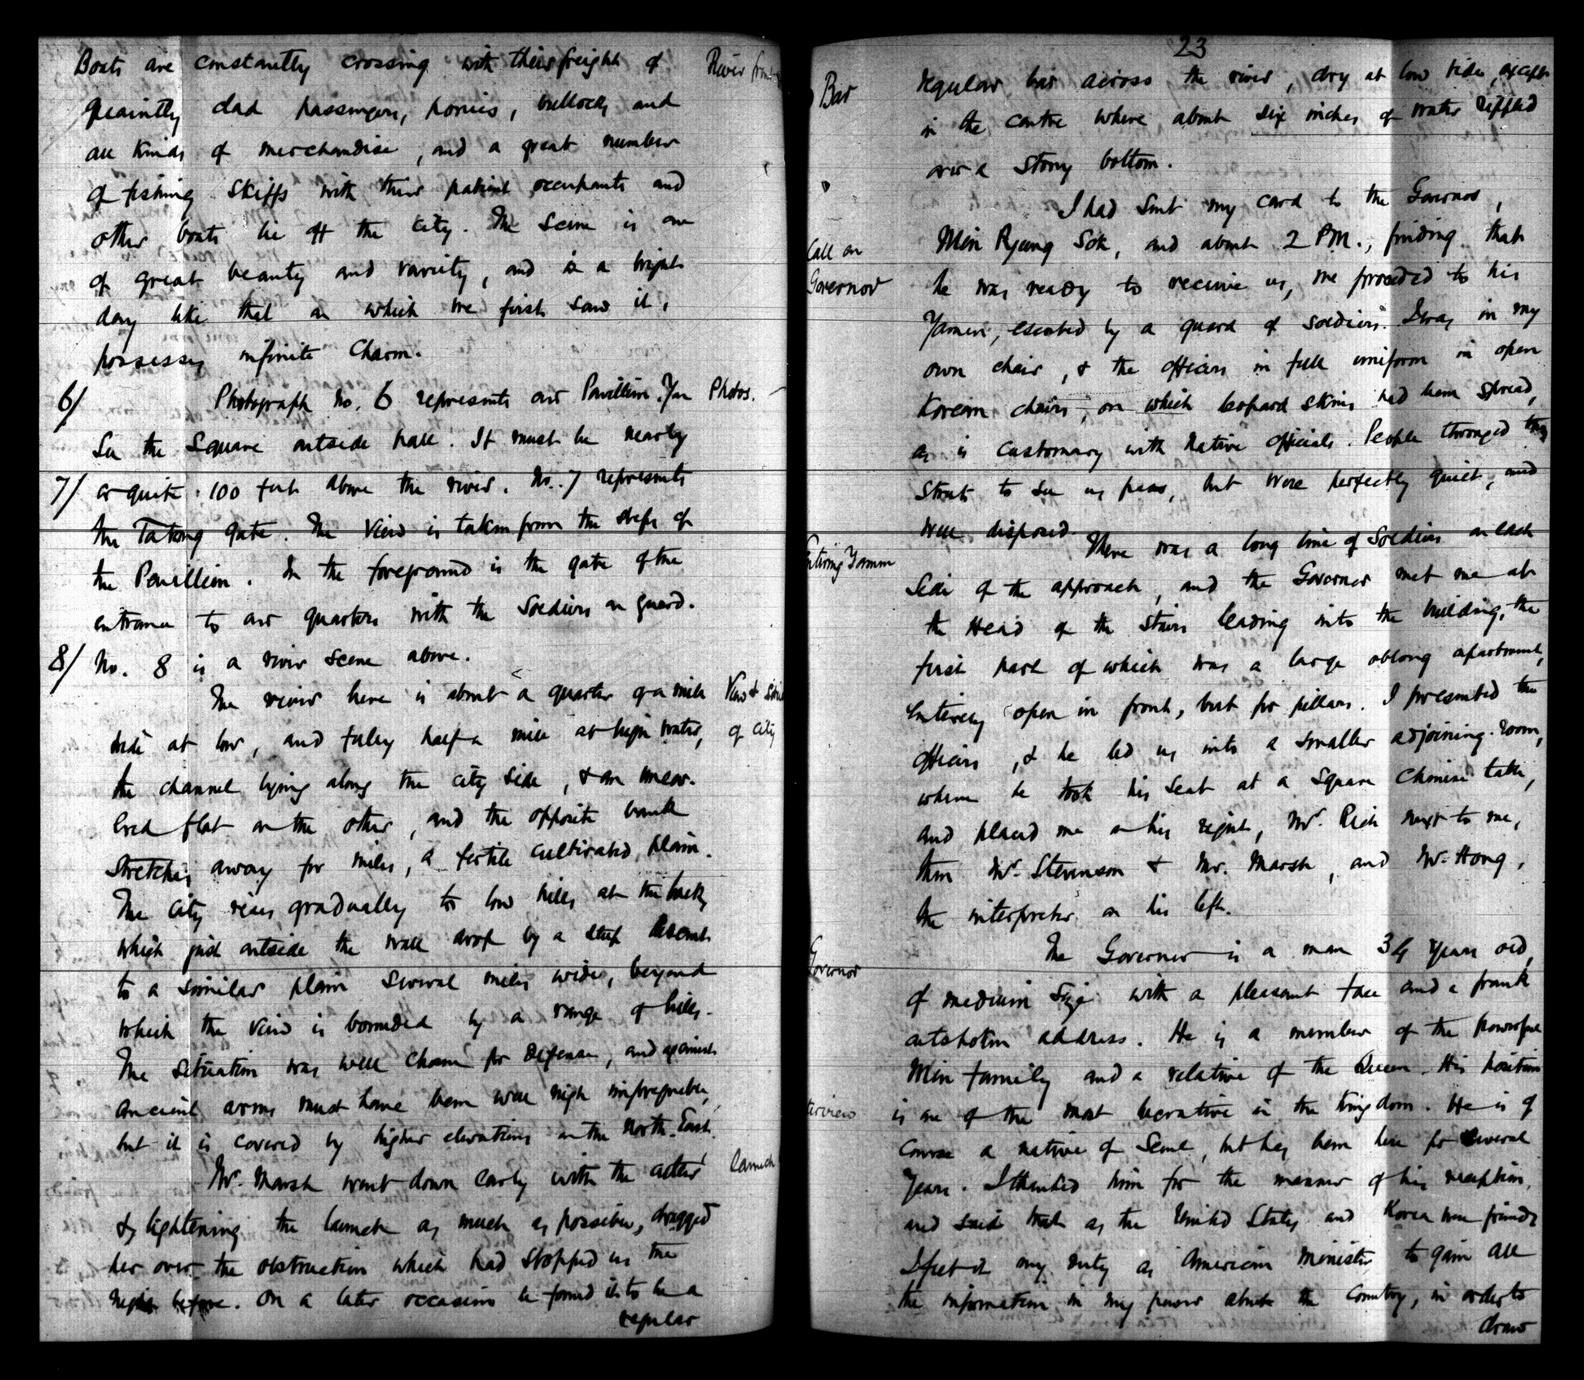 Boats are constantly crossing with their freight of
River front
quaintly clad passengers, ponies, bullocks and
all kinds of merchandise, and a great number
of fishing skiffs with their patient occupants and
other boats lie off the city. The scene is one
of great beauty and variety, and in a bright
day like that on which we first saw it,
possesses infinite charm.
6/
Photograph No. 6 represents our Pavillion. You
Photos.
See the square outside hall. It must be nearly
7/
or quite 100 feet above the river. No. 7 represents
the Tatong Gate. The view is taken from the steps of
the Pavillion. In the foreground is the gate of the
entrance to our quarters with the soldiers on guard.
8/
No. 8 is a river scene above.
The river here is about a quarter of a mile
View &
of city
wide at low, and fully half a mile at high water,
the channel lying along the city side, & an uncov-
ered flat on the other, and the opposite bank
stretches away for miles, a fertile cultivated plain.
The city rises gradually to low hills at the back,
which just outside the wall drop by a steep descent
to a similar plain several miles wide, beyond
which the view is bounded by a range of hills.
The situation was well chosen for defense, and against
ancient arms must have been well nigh impregnable,
but it is covered by higher elevations in the North East.
Mr. Marsh went down early with the
launch
& lightening the launch as much as possible, dragged
her over the obstruction which had stopped us the
night before. On a later occasion he found it to be a
regular
23
Bar
regular bar across the river, dry at low tide, except
in the centre where about six inches of water riffled
over a stony bottom.
I had sent my card to the Governor,
Call on
Governor
Min Pyung Sok, and about 2 P.M., finding that
he was ready to receive us, we proceeded to his
Yamen, escorted by a guard of soldiers. I was in my
own chair, & the officers in full uniform in open
Korean chairs, on which leopard skins had been spread,
as is customary with native officials. People thronged the
streets to see us pass, but were perfectly quiet, and
well disposed.
Entering Yamen
There was a long line of soldiers on each
side of the approach, and the Governor met me at
the head of the stairs leading into the building, the
first part of which was a large oblong apartment,
entirely open in front, but for pillars. I presented the
officers, & he led us into a smaller adjoining room,
where he took his seat at a square Chinese table,
and placed me on his right, Mr. Rich next to me,
then Mr. Stevenson & Mr. Marsh, and Mr. Hong,
the interpreter on his left.
Governor
The Governor is a man 34 years old,
of medium size with a pleasant face and a frank
outspoken address. He is a member of the powerful
Min family and a relative of the Queen. His position
terview
is one of the most lucrative in the kingdom. He is of
course a native of Seoul, but has been here for several
years. I thanked him for the manner of his reception,
and said that as the United States and Korea were friends
I felt it my duty as American minister to gain all
the information in my power about the country, in order to
draw